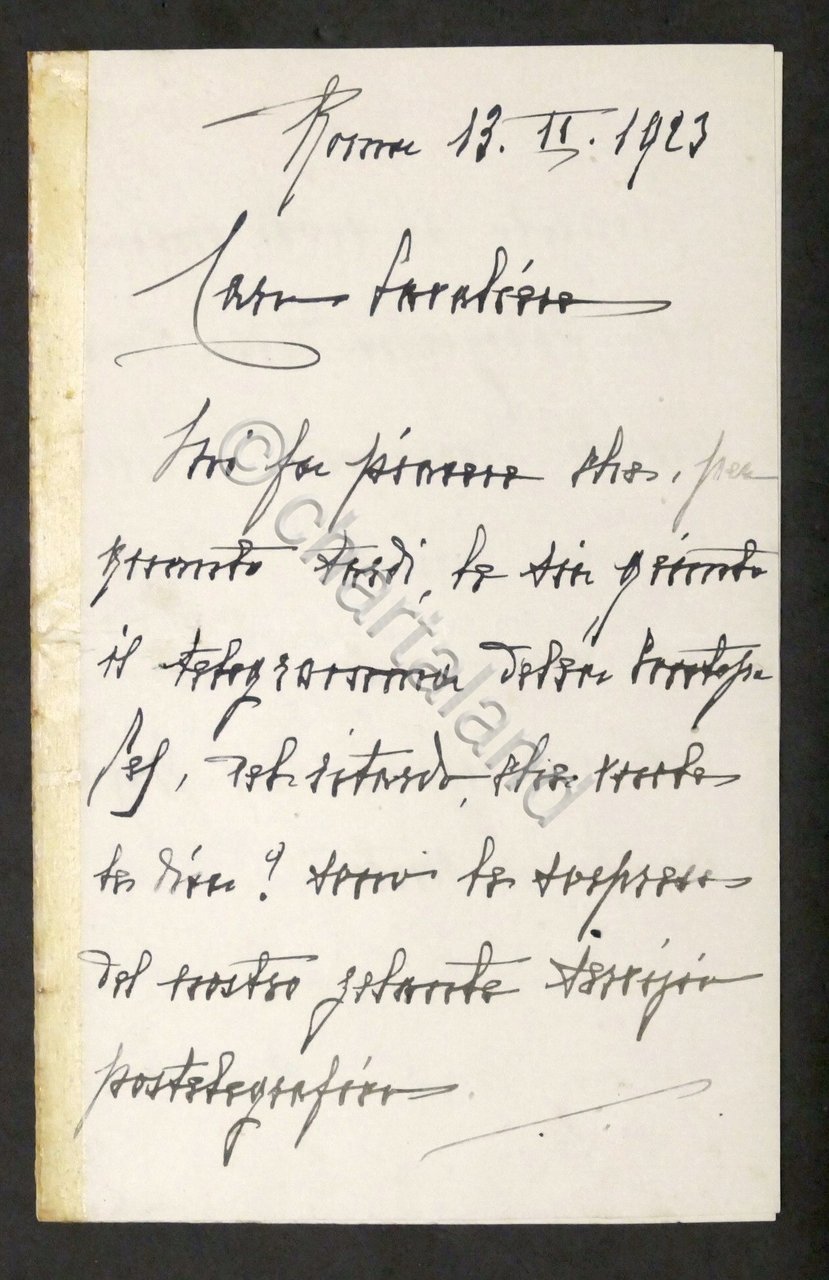 Roma 13. II. 1923
Caro Cavaliere
Mi fa piacere che, per
quanto tardi, le sia giunto
il telegramma della
del ritardo, che vuole
le dica? sono le sorprese
del nostro zelante servizio
postelegrafico.
© chartaland